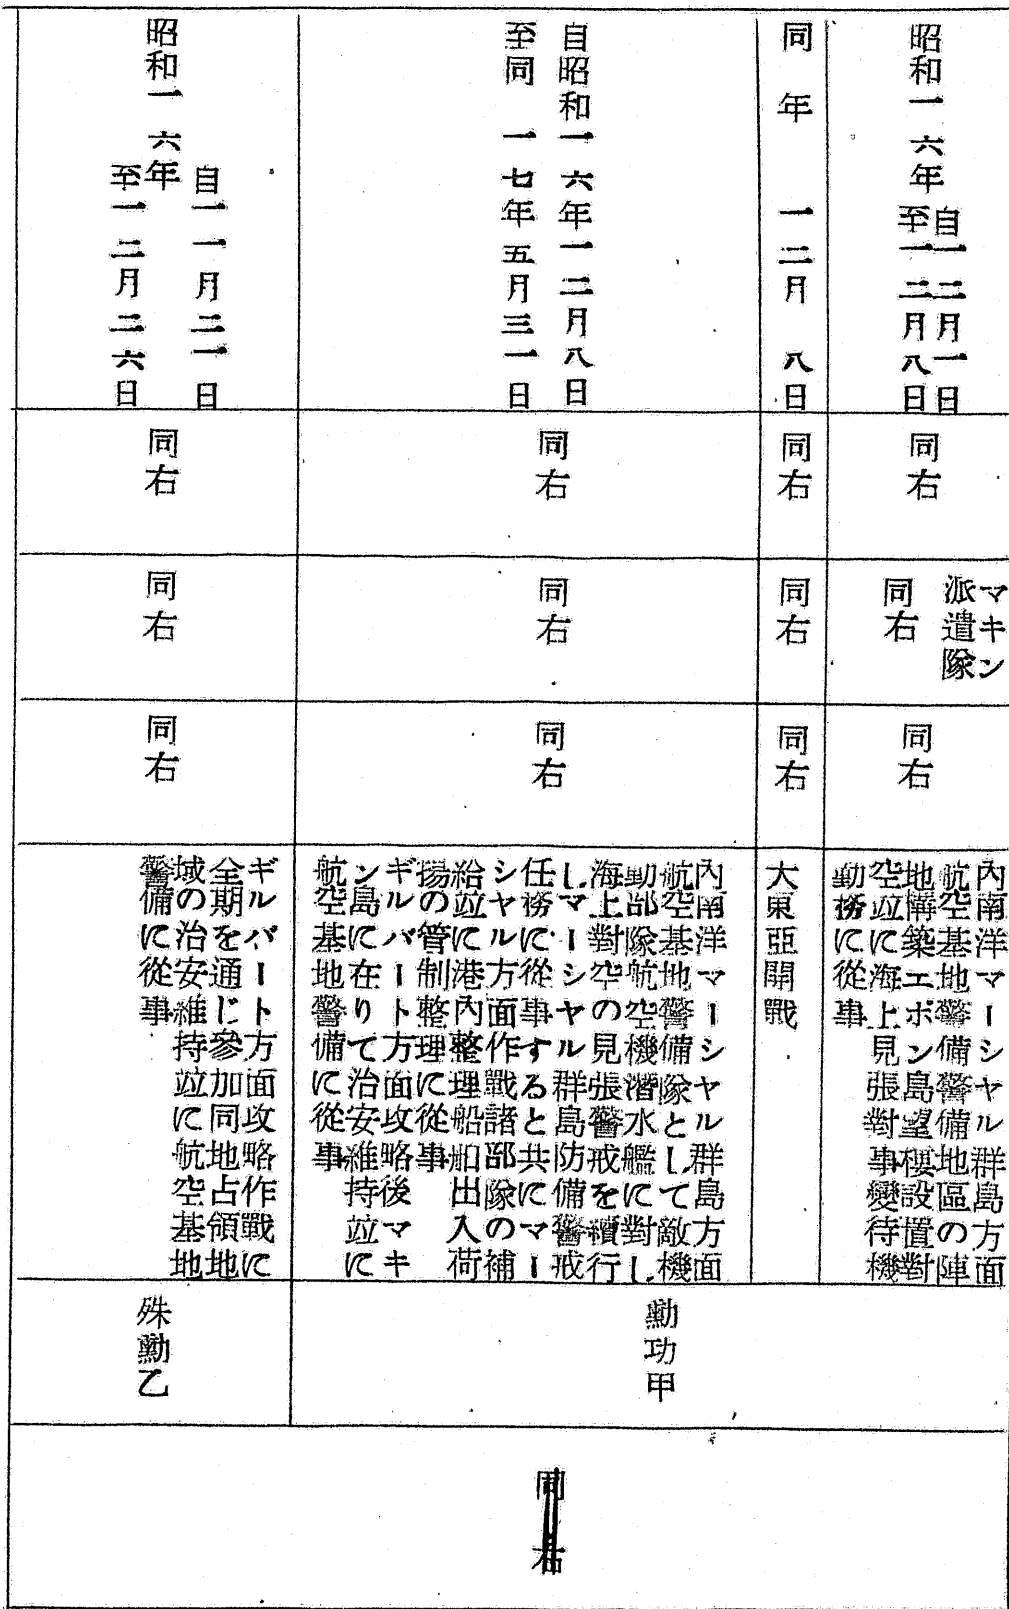 昭和一六年
自一二月一日
至一二月八日
同右
マキン
派遣隊
同右
同右
內南洋マーシヤル群島方面
航空基地警備警備地區の陣
地構築エボン島望樓設置對
空竝に海上見張對事變待機
勤務に從事
同年一二月八日
同右
同右
同右
大東亞開戰
自昭和一六年一二月八日
至同一七年五月三一日
同右
同右
同右
內南洋マーシヤル群島方面
航空基地警備隊として敵機
動部隊航空機潛水艦に對し
海上對空の見張警戒を續行
しマーシヤル群島防備警戒
任務に從事すると共にマー
シヤル方面作戰諸部隊の補
給竝に港內整理船舶出入荷
揚の管制整理に從事
ギルバート方面攻略後マキ
ン島に在りて治安維持竝に
航空基地警備に從事
勳功甲
同右
昭和一六年
自一一月二一日
至一二月二六日
同右
同右
同右
ギルバート方面攻略作戰に
全期を通じ參加同地占領地
域の治安維持竝に航空基地
警備に從事
殊勳乙